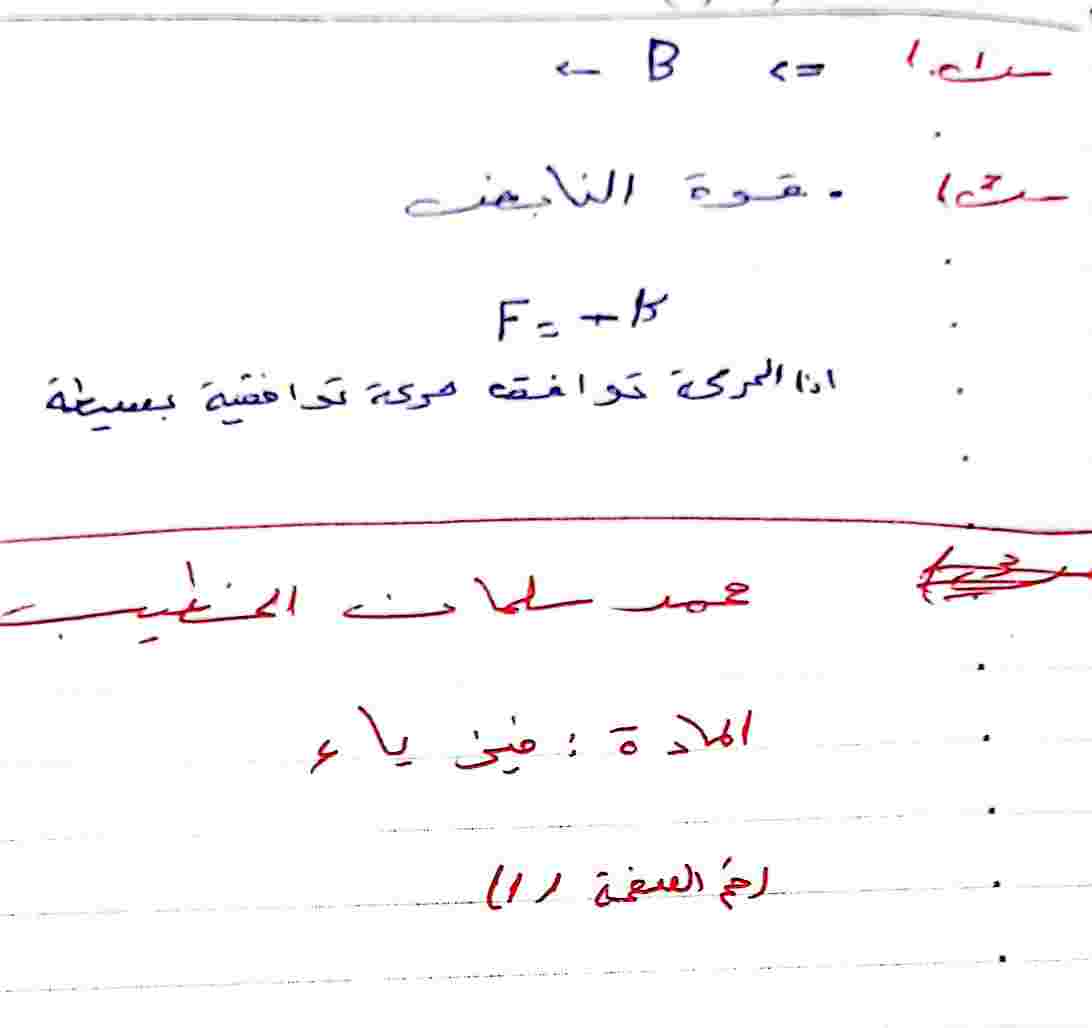 س1.1 => B ←
س2) . قوة النابض
F = -k
اذا الحركة توافق حركة توافقية بسيطة
محمد سلمان الخطيب
المادة : فيزياء
رقم الصفحة (1)